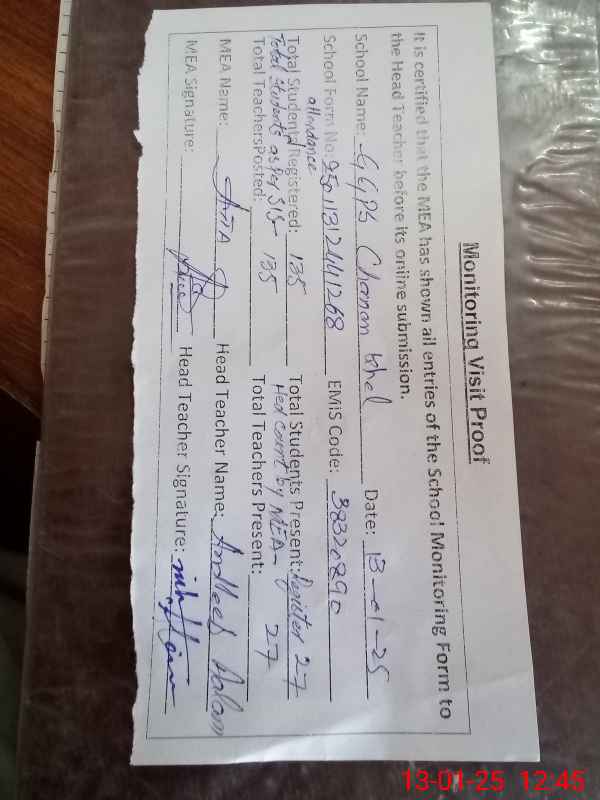 Monitoring Visit Proof
It is certified that the MEA has shown all entries of the School Monitoring Form to
the Head Teacher before its online submission.
School Name: GGPS Chaman Khel Date: 13-01-25
School Form No: 2501131244 1268 EMIS Code: 38320890
attendance
Total Students Registered: 135 Total Students Present: Register 27
Total Students as per SIS - 135 Hed count by MEA - 27
Total Teachers Posted: Total Teachers Present:
MEA Name: Head Teacher Name:
MEA Signature: Head Teacher Signature:
13-01-25 12:45